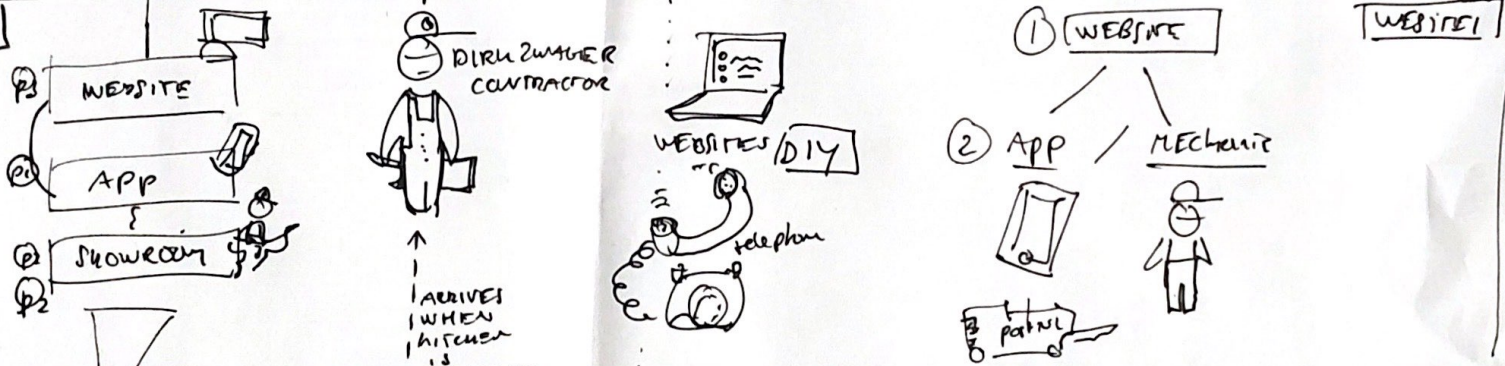 P3
WEBSITE
P1
APP
P2
SHOWROOM
P2
DIRK ZWAGER
CONTRACTOR
ARRIVES
WHEN
KITCHEN
IS
WEBSITES/DIY
telephone
1 WEBSITE
2 APP / MEChanic
WEBSITE1